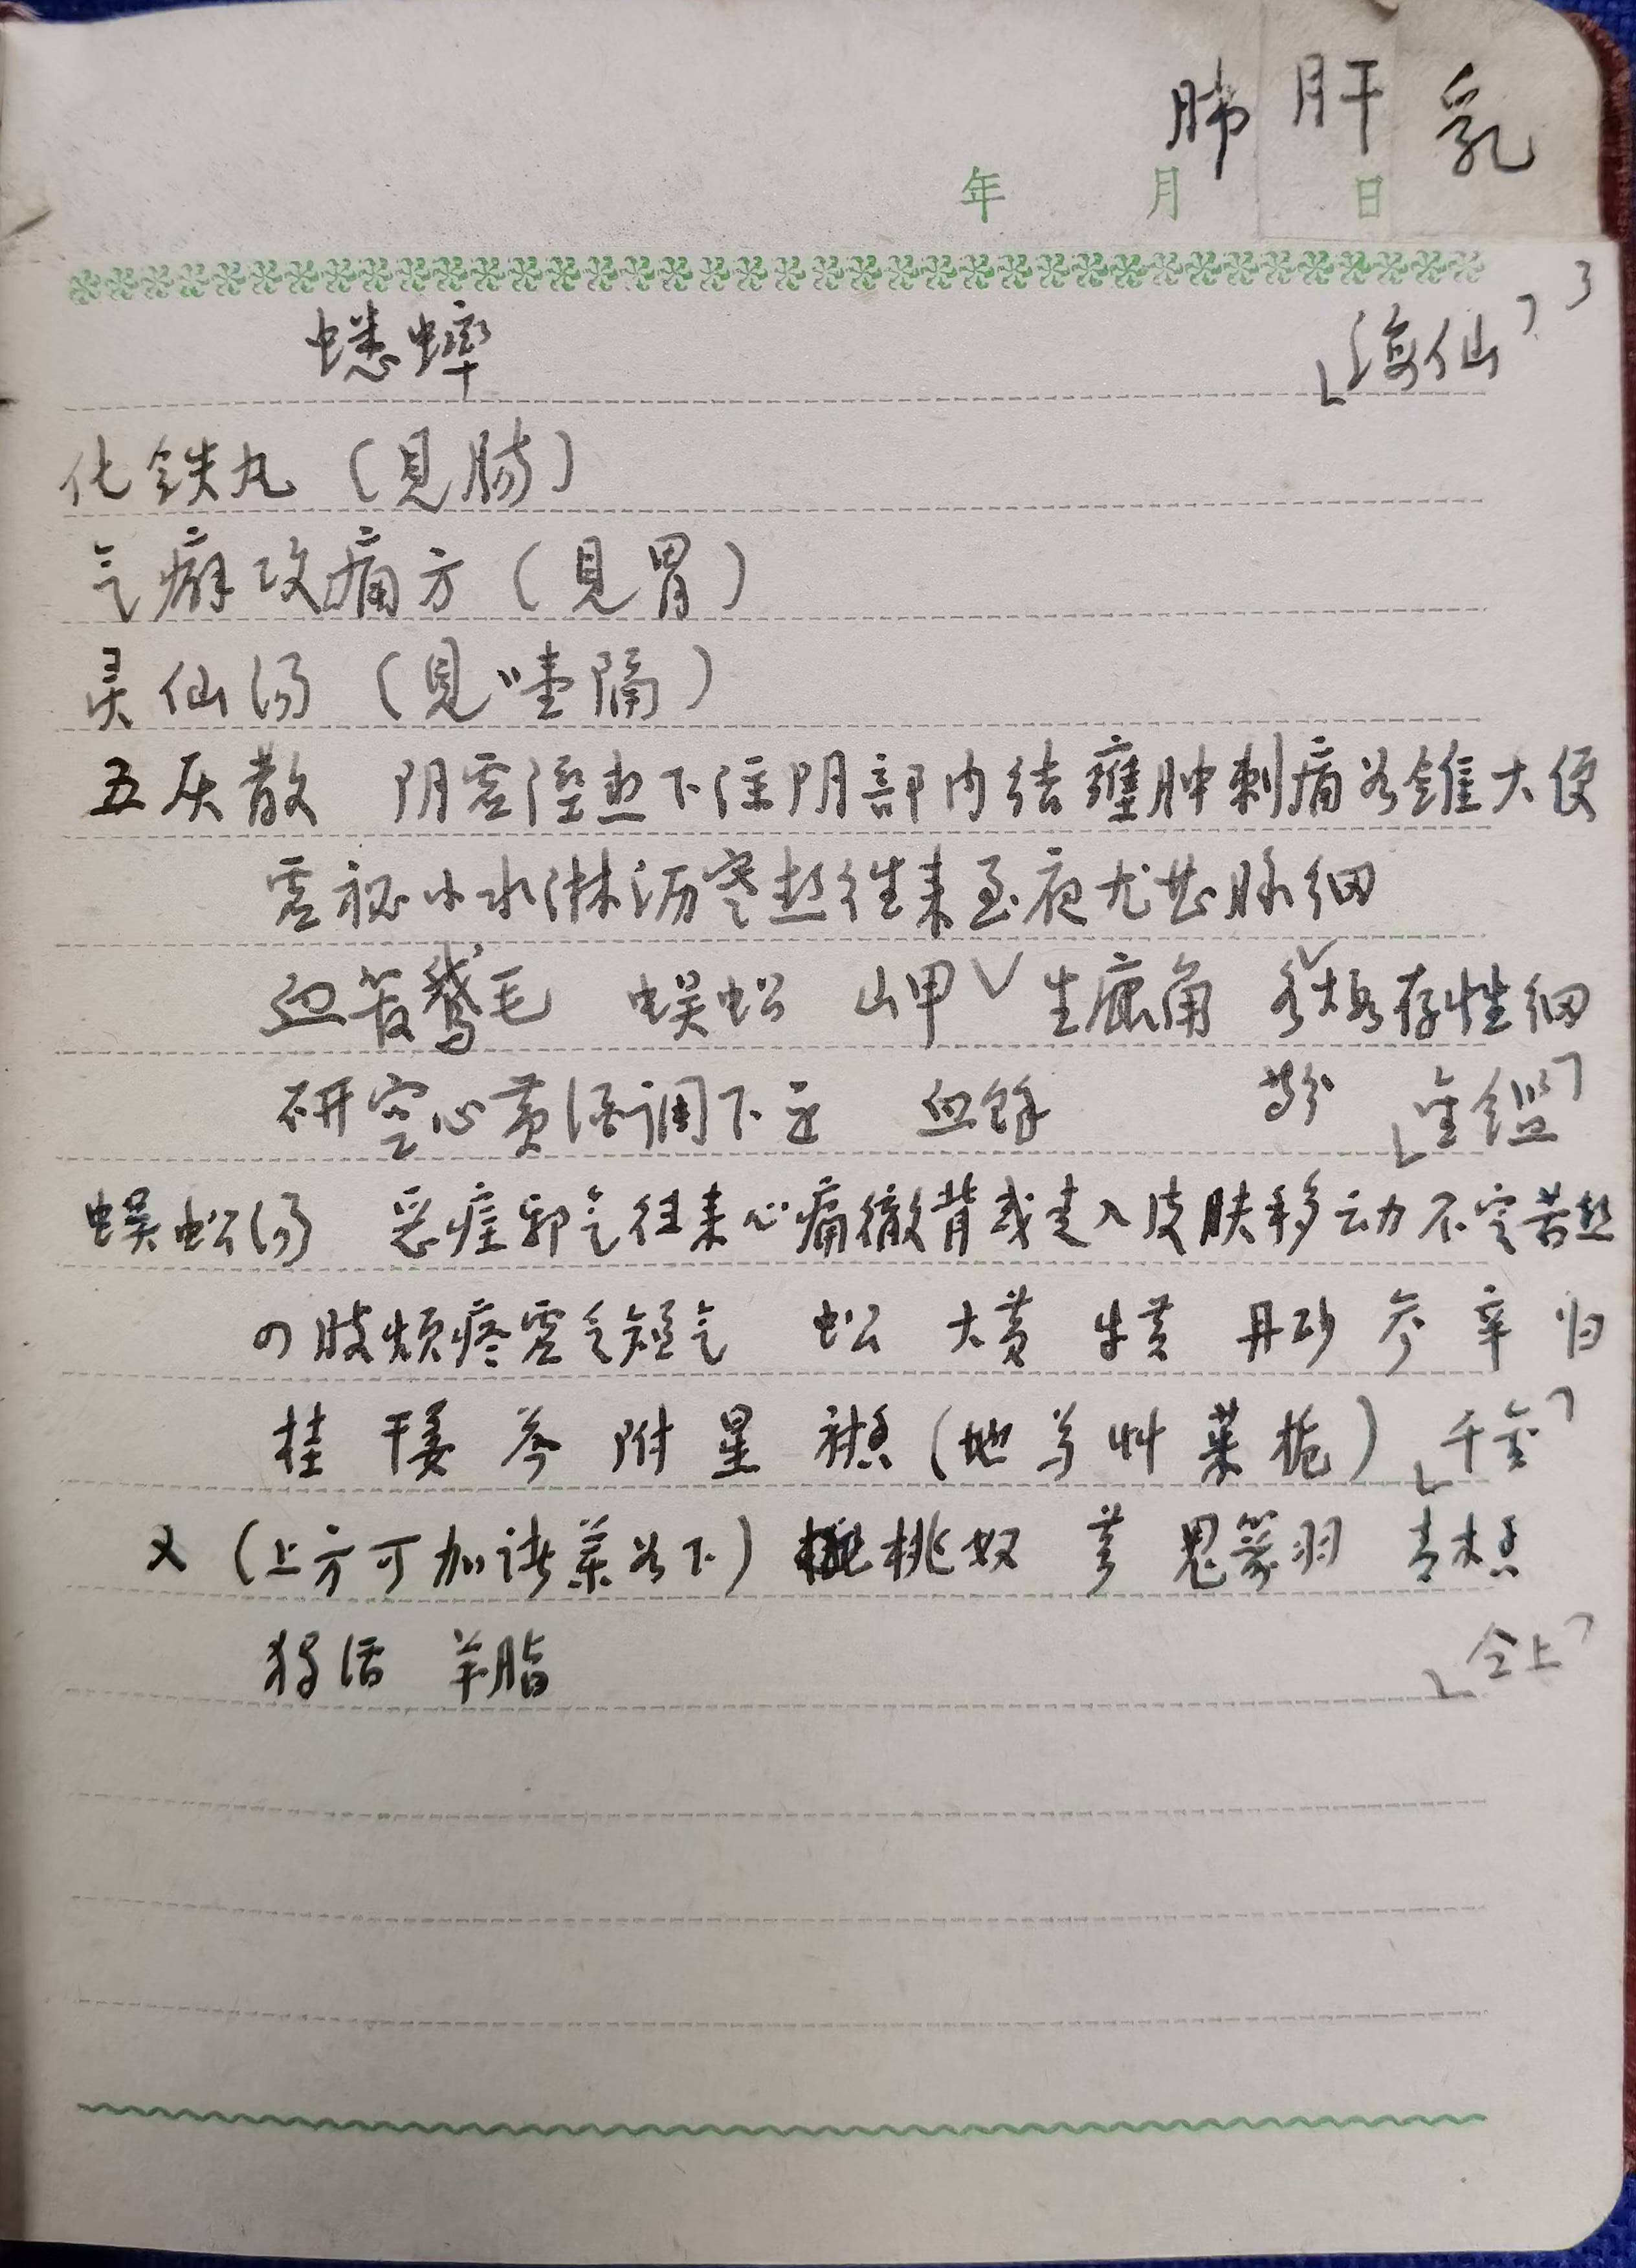 肺 肝 乳
年 月 日
3
蟋蟀 「海仙」
化铁丸（见肠）
气癖攻痛方（见胃）
灵仙汤（见噎隔）
五灰散 阴虚湿热下注阴部内结壅肿刺痛如锥大便
虚秘小水淋沥寒热往来至夜尤甚脉细
血管鹅毛 蜈蚣 山甲 生鹿角 各煅存性细
研空心黄酒调下 血余 「金鉴」
蜈蚣汤 恶疰邪气往来心痛徹背或走入皮肤移动不定苦热
四肢烦疼虚乏短气 蚣 大黄 牛黄 丹砂 参 辛 归
桂 干姜 芩 附 星 射香（地与艹菜栀）「千金」
又（上方可加诸药如下）桃奴 芎 鬼箭羽 青木香
独活 羊脂 「仝上」